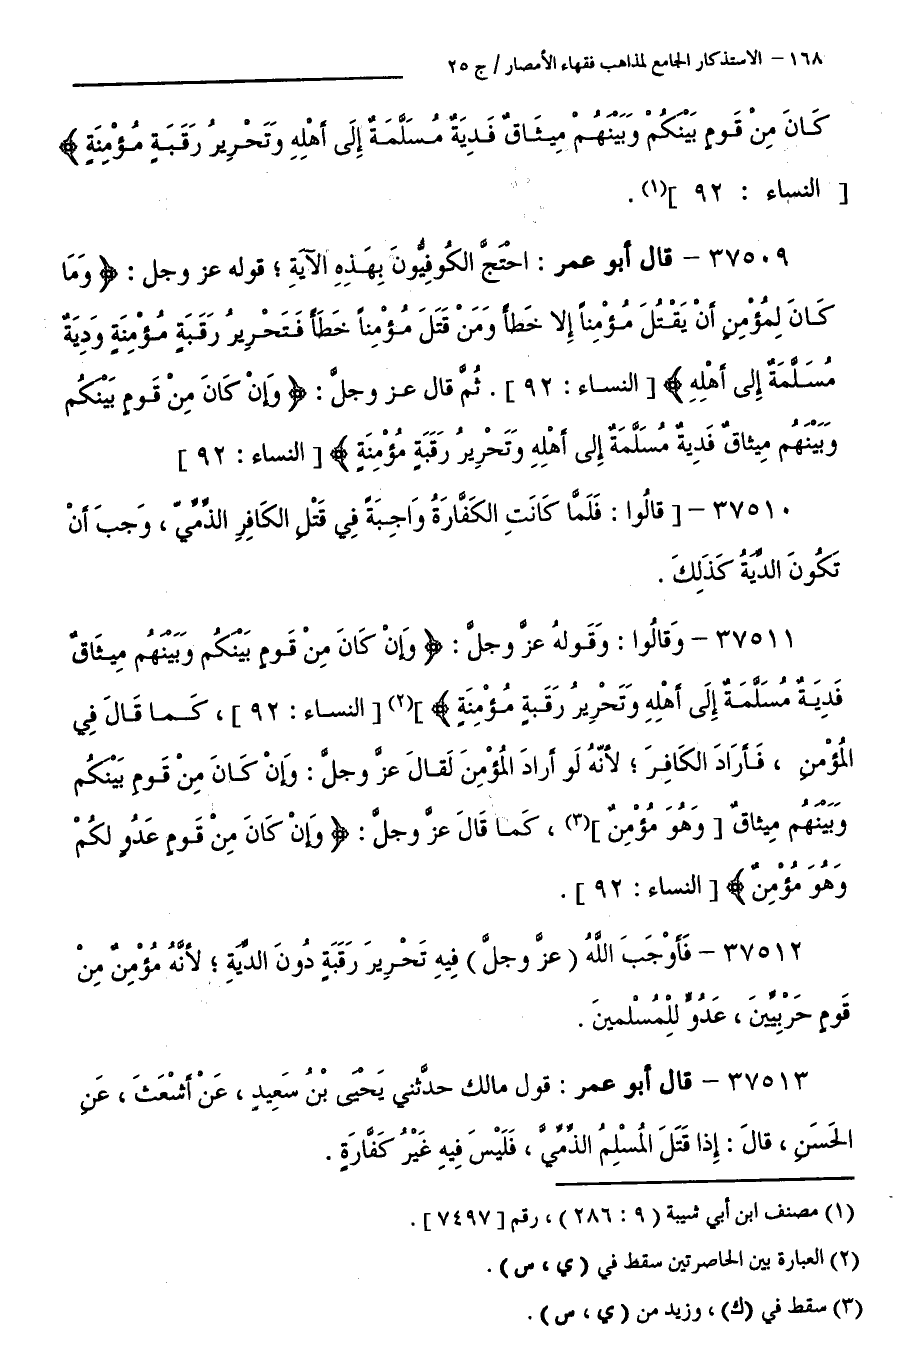 ١٦٨ – الاستذكار الجامع لمذاهب فقهاء الأمصار / ج ٢٥
كَانَ مِنْ قَومٍ بَيْنَكُمْ وَبَيْنَهُمْ مِيثَاقٌ فَدِيَةٌ مُسَلَّمَةٌ إِلَى أهْلِهِ وَتَحْرِيرُ رَقَبَةٍ مُؤْمِنَةٍ ﴾
[ النساء : ٩٢ ](١) .
٣٧٥٠٩ – قال أبو عمر : احْتَجَّ الكُوفِيُّونَ بِهَذِهِ الآيَةِ ؛ قوله عز وجل : ﴿ وَمَا
كَانَ لِمُؤْمِنٍ أنْ يَقْتُلَ مُؤْمِناً إلا خَطَأً وَمَنْ قَتَلَ مُؤْمِناً خَطَأً فَتَحْرِيرُ رَقَبَةٍ مُؤْمِنَةٍ وَدِيَةٌ
مُسَلَّمَةٌ إِلى أهْلِهِ ﴾ [ النساء : ٩٢ ] . ثُمَّ قال عز وجلَّ : ﴿ وَإنْ كَانَ مِنْ قَومٍ بَيْنَكُم
وَبَيْنَهُم مِيثاقٌ فَدِيةٌ مُسَلَّمَةٌ إِلى أهْلِهِ وَتَحْرِيرُ رَقَبَةٍ مُؤْمِنَةٍ ﴾ [ النساء : ٩٢ ]
٣٧٥١٠ – [ قالُوا : فَلَمَّا كَانَتِ الكَفَّارَةُ وَاجِبَةً فِي قَتْلِ الكَافِرِ الذِّمِّيِّ ، وَجبَ أنْ
تَكُونَ الدِّيَةُ كَذَلِكَ .
٣٧٥١١ – وَقَالُوا : وَقَولهُ عزَّ وجلَّ : ﴿ وَإنْ كَانَ مِنْ قَومٍ بَيْنَكُم وَبَيْنَهُم مِيثَاقٌ
فَدِيَةٌ مُسَلَّمَةٌ إِلَى أهْلِهِ وَتَحْرِيرُ رَقَبةٍ مُؤْمِنَةٍ ﴾ ](٢) [ النساء : ٩٢ ] ، كَمَا قَالَ فِي
المُؤْمنِ ، فَأرَادَ الكَافِرَ ؛ لأنَّهُ لَو أرادَ المُؤْمِنَ لَقالَ عزَّ وجلَّ : وَإنْ كَانَ مِنْ قَومٍ بَيْنَكُم
وَبَيْنَهُم مِيثاقٌ [ وَهُوَ مُؤْمِنٌ ](٣) ، كَمَا قَالَ عزَّ وجلَّ : ﴿ وَإنْ كَانَ مِنْ قَومٍ عَدُوٍ لكُمْ
وَهُوَ مُؤْمِنٌ ﴾ [ النساء : ٩٢ ] .
٣٧٥١٢ – فَأوْجَبَ اللَّهُ ( عزَّ وجلَّ ) فِيهِ تَحْرِيرَ رَقَبَةٍ دُونَ الدِّيَةِ ؛ لأنَّهُ مُؤْمِنٌ مِنْ
قَومٍ حَرْبِيِّينَ ، عَدُوٌّ لِلْمُسْلمينَ .
٣٧٥١٣ – قال أبو عمر : قول مالك حدَّثني يَحْيَى بْنُ سَعِيدٍ ، عَنْ أشْعَثَ ، عَنِ
الحَسَنِ ، قالَ : إذا قَتَلَ المُسْلِمُ الذِّمِّيَّ ، فَلَيْسَ فِيهِ غَيْرُ كَفَّارَةٍ .
(١) مصنف ابن أبي شيبة ( ٩ : ٢٨٦ ) ، رقم [ ٧٤٩٧ ] .
(٢) العبارة بين الحاصرتين سقط في ( ي ، س ) .
(٣) سقط في (ك) ، وزيد من ( ي ، س ) .